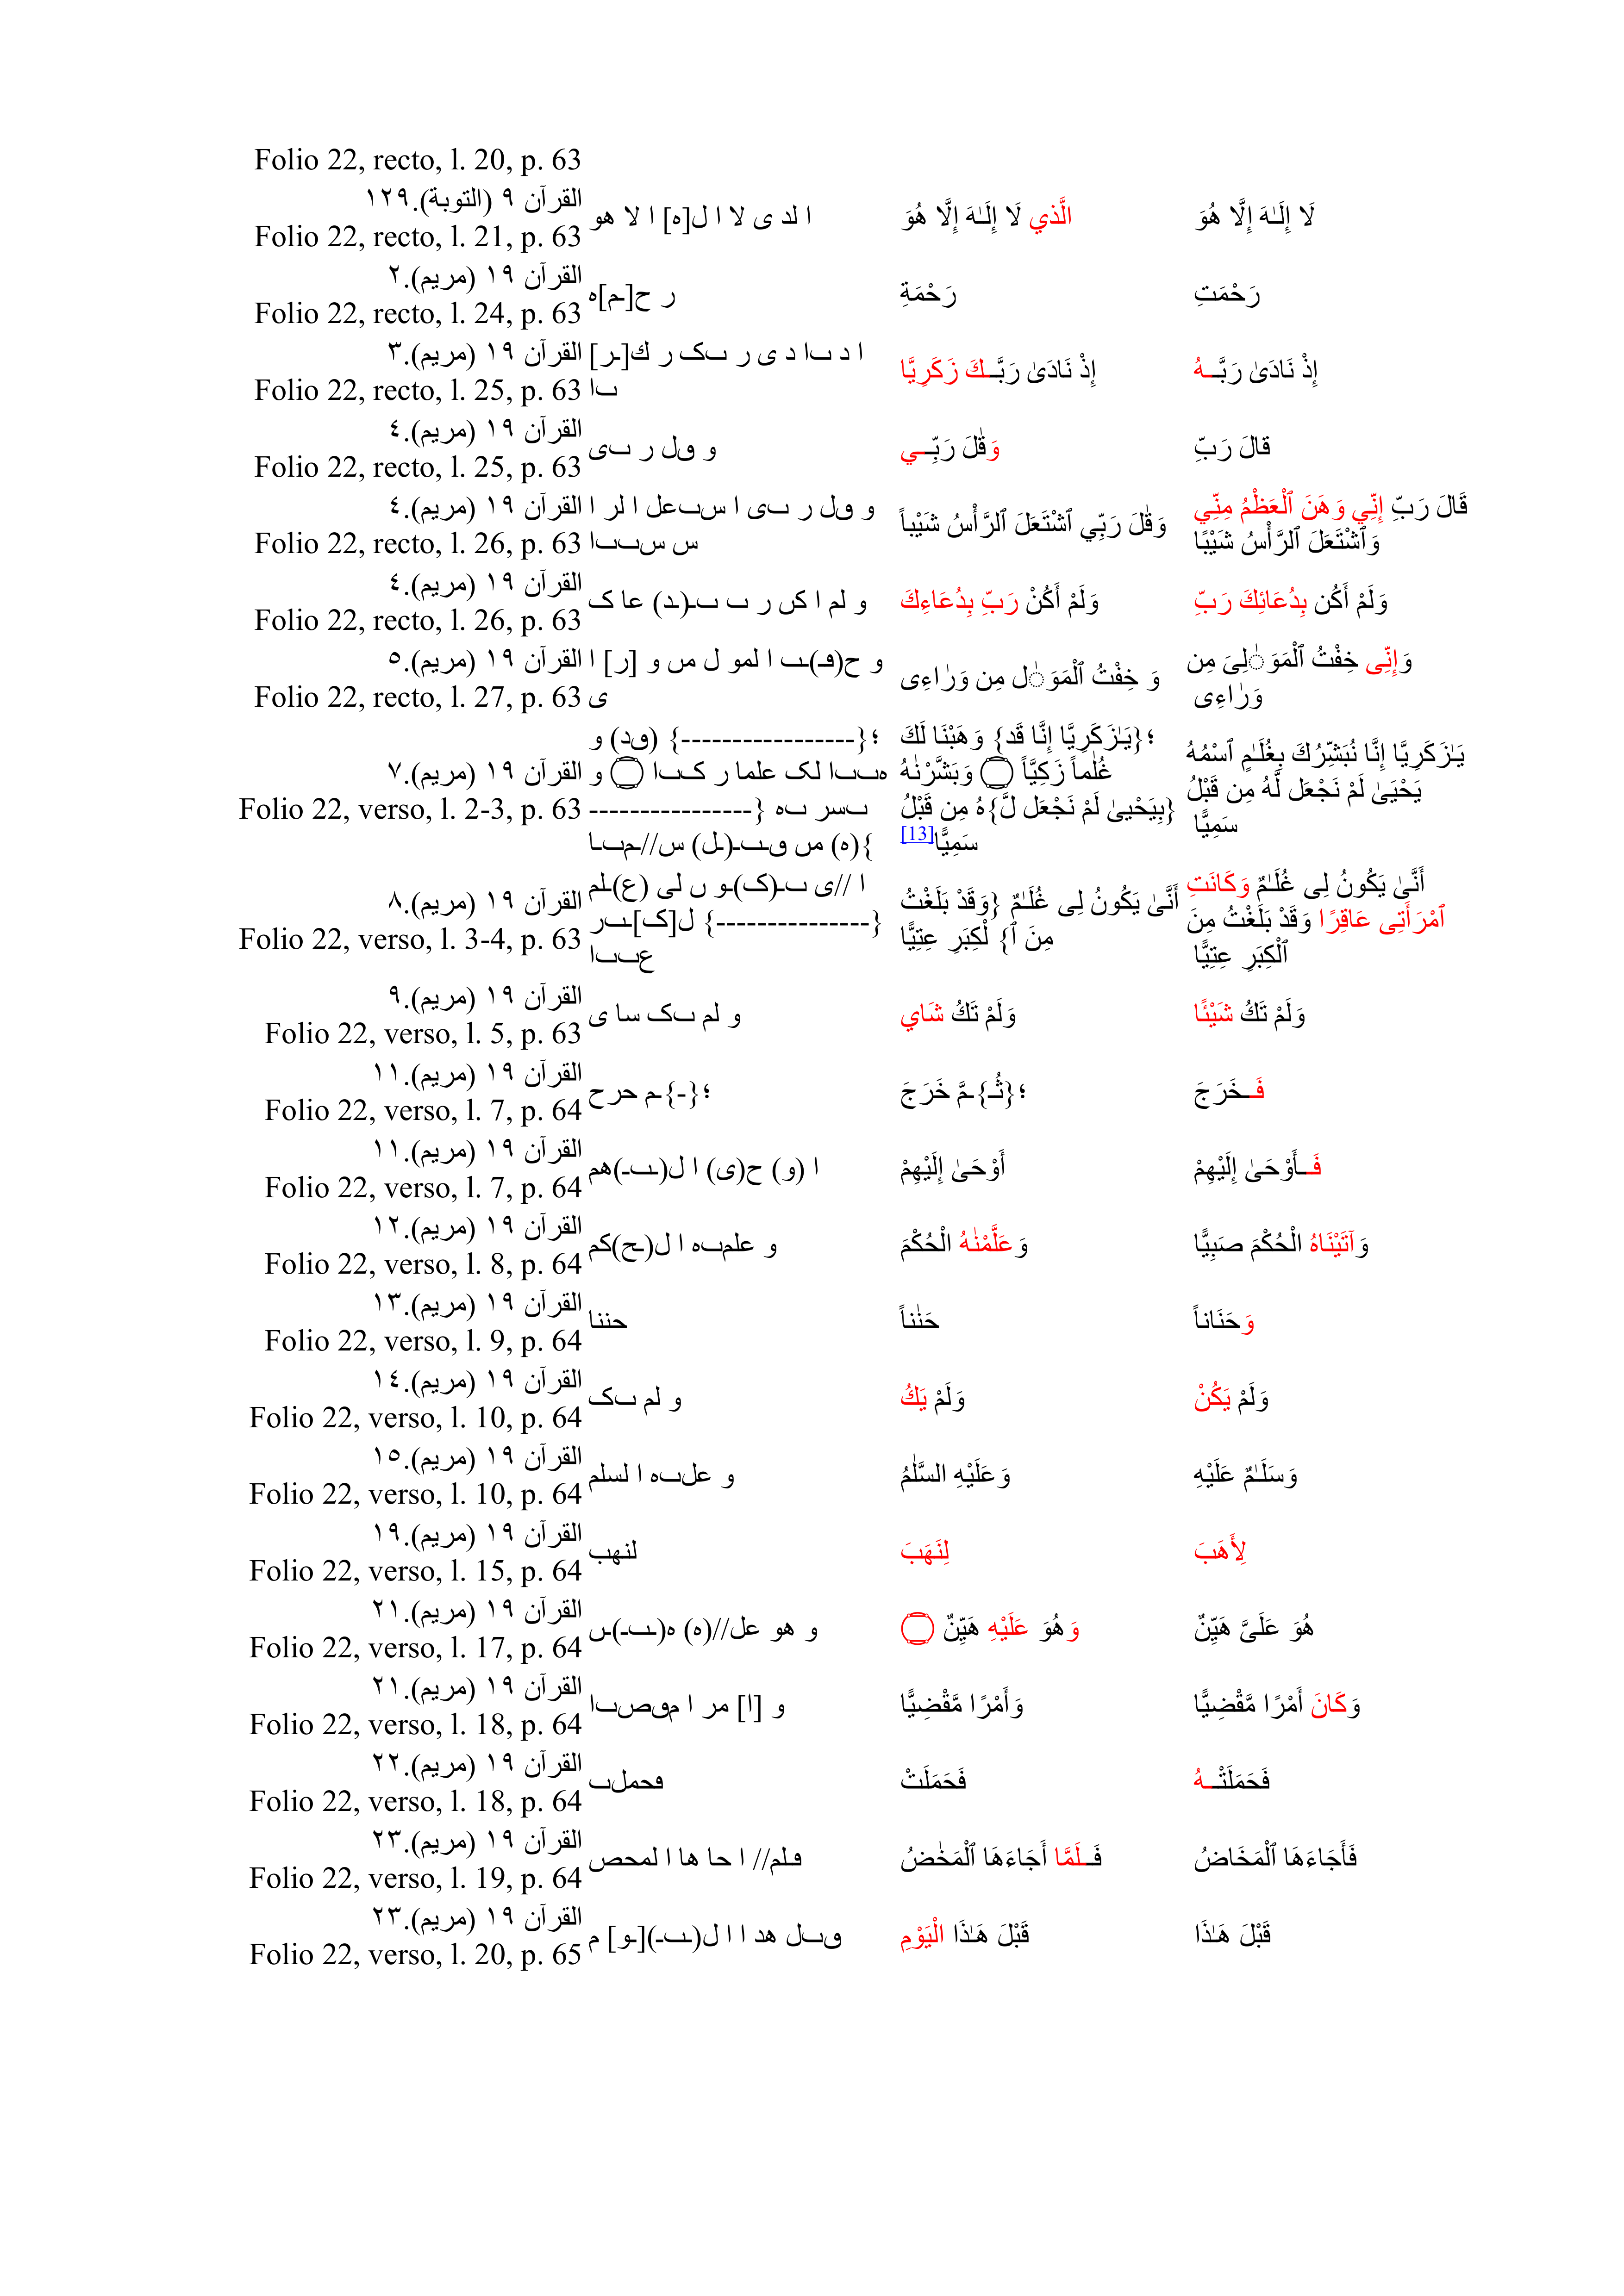 Folio 22, recto, l. 20, p. 63
القرآن ٩ (التوبة).١٢٩
Folio 22, recto, l. 21, p. 63
ا لد ى لا ا ل[ه] ا لا هو
الَّذي لَا إِلَـٰهَ إِلَّا هُوَ
لَا إِلَـٰهَ إِلَّا هُوَ
القرآن ١٩ (مريم).٢
Folio 22, recto, l. 24, p. 63
ر ح[ـمـ]ه
رَحْمَةِ
رَحْمَتِ
القرآن ١٩ (مريم).٣
Folio 22, recto, l. 25, p. 63
ا د ٮا د ى ر ٮک ر ك[ـر]
ٮا
إِذْ نَادَىٰ رَبَّـكَ زَكَرِيَّا
إِذْ نَادَىٰ رَبَّـهُ
القرآن ١٩ (مريم).٤
Folio 22, recto, l. 25, p. 63
و ٯل ر ٮى
وَقٰلَ رَبِّـي
قالَ رَبِّ
القرآن ١٩ (مريم).٤
Folio 22, recto, l. 26, p. 63
و ٯل ر ٮى ا سٮعل ا لر ا
س سٮٮا
وَقٰلَ رَبِّي ٱشْتَعَلَ ٱلرَّأْسُ شَيْباً
قَالَ رَبِّ إِنِّي وَهَنَ ٱلْعَظْمُ مِنِّي
وَٱشْتَعَلَ ٱلرَّأْسُ شَيْبًا
القرآن ١٩ (مريم).٤
Folio 22, recto, l. 26, p. 63
و لم ا کں ر ٮ ٮـ(ـد) عا ک
وَلَمْ أَكُنْ رَبِّ بِدُعَاءِكَ
وَلَمْ أَكُن بِدُعَائِكَ رَبِّ
القرآن ١٩ (مريم).٥
Folio 22, recto, l. 27, p. 63
و ح(ڡـ)ـٮ ا لمو ل مں و [ر] ا
ى
وَ خِفْتُ ٱلْمَوَٰل مِن وَرٰاءِى
وَإِنِّى خِفْتُ ٱلْمَوَٰلِىَ مِن
وَرٰاءِى
القرآن ١٩ (مريم).٧
Folio 22, verso, l. 2-3, p. 63
؛{-----------------} (ٯد) و
هٮٮا لک علما ر کٮا ۝ و
ٮسر ٮه {----------------
}(ه) مں ٯـٮـ(ـل) س//ـمٮـا
؛{يَـٰزَكَرِيَّا إِنَّا قَد} وَهَبْنَا لَكَ
غُلٰماً زَكِيَّاً ۝ وَبَشَّرْنٰهُ
{بِيَحْيىٰ لَمْ نَجْعَل لَّ}هُ مِن قَبْلُ
سَمِيًّا[13]
يَـٰزَكَرِيَّا إِنَّا نُبَشِّرُكَ بِغُلَـٰمٍ ٱسْمُهُ
يَحْيَىٰ لَمْ نَجْعَل لَّهُ مِن قَبْلُ
سَمِيًّا
القرآن ١٩ (مريم).٨
Folio 22, verso, l. 3-4, p. 63
ا //ى ٮـ(ک)ـو ں لى (ع)ـلم
{---------------} ل[ک]ـٮر
عٮٮا
أَنَّىٰ يَكُونُ لِى غُلَـٰمٌ {وَقَدْ بَلَغْتُ
مِنَ ٱ} لْكِبَرِ عِتِيًّا
أَنَّىٰ يَكُونُ لِى غُلَـٰمٌ وَكَانَتِ
ٱمْرَأَتِى عَاقِرًا وَقَدْ بَلَغْتُ مِنَ
ٱلْكِبَرِ عِتِيًّا
القرآن ١٩ (مريم).٩
Folio 22, verso, l. 5, p. 63
و لم ٮک سا ى
وَلَمْ تَكُ شَاي
وَلَمْ تَكُ شَيْـًٔا
القرآن ١٩ (مريم).١١
Folio 22, verso, l. 7, p. 64
؛{-}ـم حرح
؛{ثُـ}ـمَّ خَرَجَ
فَـخَرَجَ
القرآن ١٩ (مريم).١١
Folio 22, verso, l. 7, p. 64
ا (و) ح(ى) ا ل(ـٮـ)هم
أَوْحَىٰ إِلَيْهِمْ
فَـأَوْحَىٰ إِلَيْهِمْ
القرآن ١٩ (مريم).١٢
Folio 22, verso, l. 8, p. 64
و علمٮه ا ل(ـحـ)كم
وَعَلَّمْنٰهُ الْحُكْمَ
وَآتَيْنَاهُ الْحُكْمَ صَبِيًّا
القرآن ١٩ (مريم).١٣
Folio 22, verso, l. 9, p. 64
حننا
حَنٰناً
وَحَنَاناً
القرآن ١٩ (مريم).١٤
Folio 22, verso, l. 10, p. 64
و لم ٮک
وَلَمْ يَكُ
وَلَمْ يَكُنْ
القرآن ١٩ (مريم).١٥
Folio 22, verso, l. 10, p. 64
و علٮه ا لسلم
وَعَلَيْهِ السَّلٰمُ
وَسَلَـٰمٌ عَلَيْهِ
القرآن ١٩ (مريم).١٩
Folio 22, verso, l. 15, p. 64
لنهب
لِنَهَبَ
لِأَهَبَ
القرآن ١٩ (مريم).٢١
Folio 22, verso, l. 17, p. 64
و هو عل//(ه) ه(ـٮـ)ـں
وَهُوَ عَلَيْهِ هَيِّنٌ ۝
هُوَ عَلَىَّ هَيِّنٌ
القرآن ١٩ (مريم).٢١
Folio 22, verso, l. 18, p. 64
و [ا] مر ا مٯصٮا
وَأَمْرًا مَّقْضِيًّا
وَكَانَ أَمْرًا مَّقْضِيًّا
القرآن ١٩ (مريم).٢٢
Folio 22, verso, l. 18, p. 64
ڡحملٮ
فَحَمَلَتْ
فَحَمَلَتْـهُ
القرآن ١٩ (مريم).٢٣
Folio 22, verso, l. 19, p. 64
ڡـلم// ا حا ها ا لمحص
فَـلَمَّا أَجَاءَهَا ٱلْمَخٰضُ
فَأَجَاءَهَا ٱلْمَخَاضُ
القرآن ١٩ (مريم).٢٣
Folio 22, verso, l. 20, p. 65
ٯٮل هدا ا ل(ـٮـ)[ـو] م
قَبْلَ هَـٰذَا الْيَوْمِ
قَبْلَ هَـٰذَا